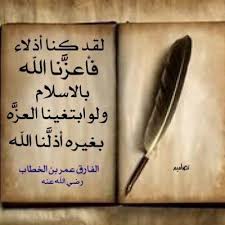 لقد كنا أذلاء
فأعزَّنا الله
بالاسلام
ولو ابتغينا العزَّه
بغيره أذلَّنا الله
الفارق عمر بن الخطاب
رضي الله عنه